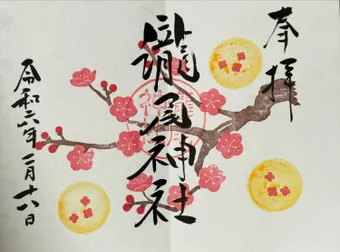 奉拝
龍尾神社
令和六年二月十六日